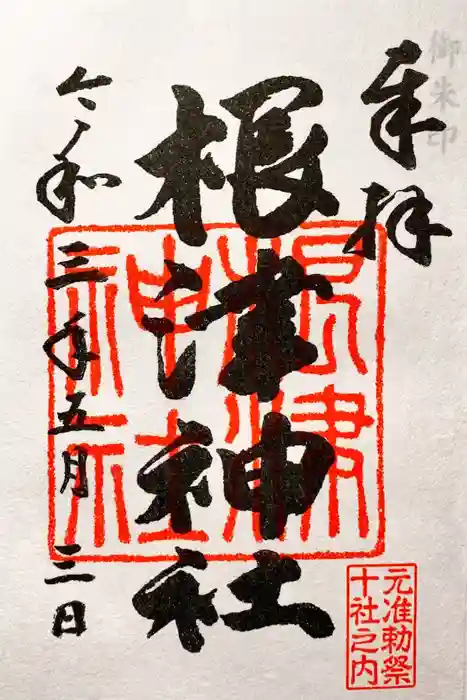 御朱印
奉拝
根津神社
根津
神社
令和三年五月三日
元准勅祭
十社之内